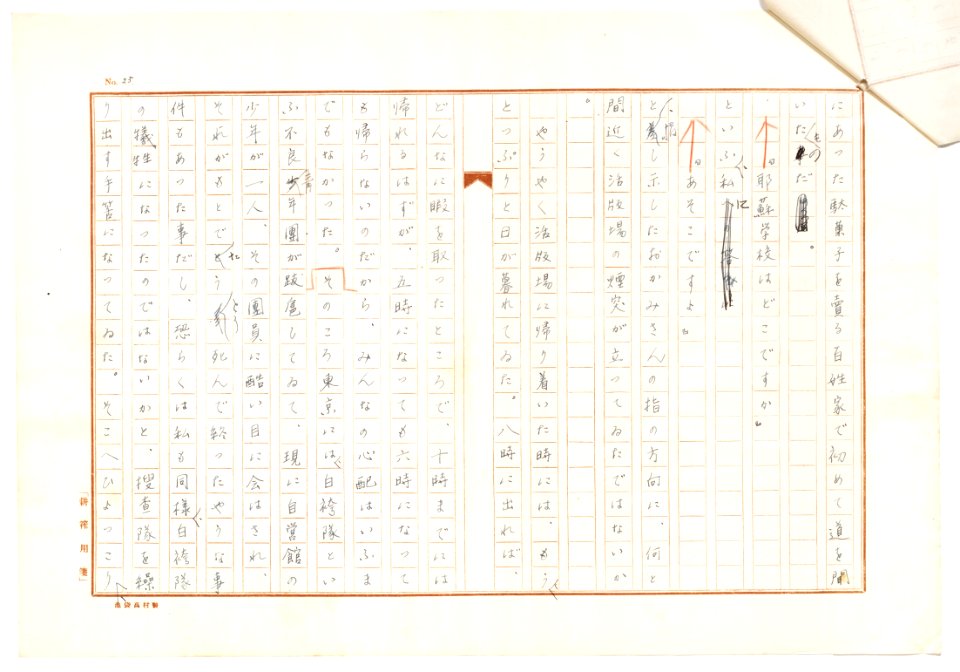 No. 25
にあった駄菓子を賣る百姓家で初めて道を聞
いたものだ。
「耶蘇学校はどこですか。」
といふ私に
「あそこですよ。」
と示したおかみさんの指の方向に、何と
間近く活版場の煙突が立つてゐたではないか
。
やうやく活版場に帰り着いた時には、もう
とつぷりと日が暮れてゐた。八時に出れば、
どんなに暇を取つたところで、十時までには
帰れるはずが、五時になつても六時になつて
も帰らないのだから、みんなの心配はいふま
でもなかつた。そのころ東京には白袴隊とい
ふ不良青年團が跋扈してゐて、現に自営館の
少年が一人、その團員に酷い目に会はされ、
それがもとでたうとう死んで終つたやうな事
件もあつた事だし、恐らくは私も同様白袴隊
の犠牲になつたのではないかと、捜査隊を繰
り出す手筈になつてゐた。そこへひよつこり
「耕容用箋」